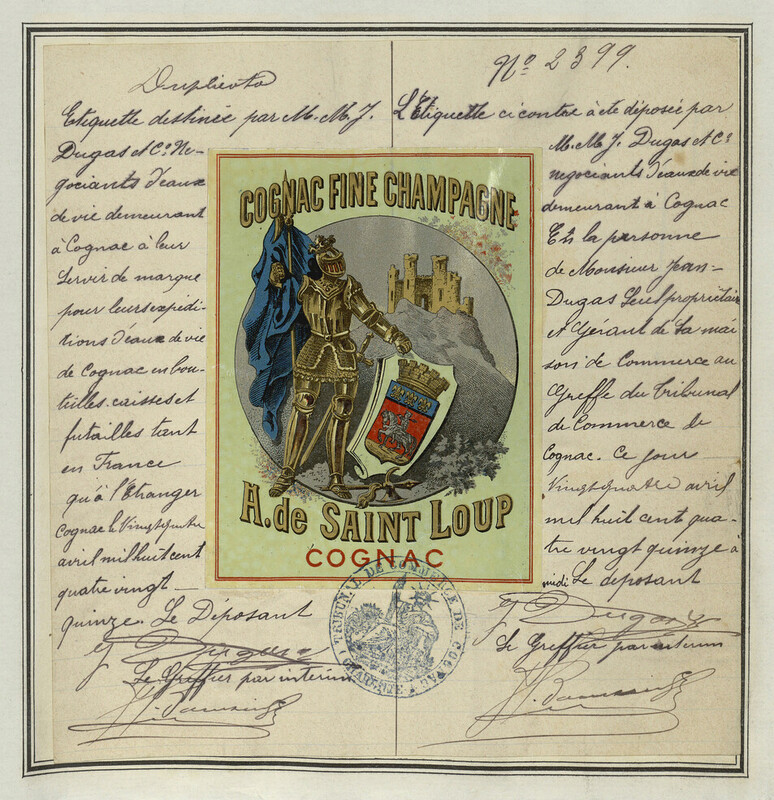 Duplicata
Etiquette destinée par M.M. J.
Dugas et Cº Ne-
gociants d'eaux
de vie demeurant
à Cognac à leur
servir de marque
pour leurs expédi-
tions d'eaux de vie
de Cognac en bou-
teilles caisses et
futailles tant
en France
qu'à l'Etranger
Cognac le Vingt quatre
avril mil huit cent
quatre vingt
quinze. Le Déposant
J Dugas
Le Greffier par interim
Nº 2399.
L'Etiquette ci contre à été déposée par
M.M J. Dugas et Cº
negociants d'eaux de vie
demeurant à Cognac
En la personne
de Monsieur Jean
Dugas seul propriétaire
et Gérant de la mai
son de Commerce au
Greffe du Tribunal
de Commerce de
Cognac. Ce jour
Vingt quatre avril
mil huit cent qua-
tre vingt quinze à
midi Le deposant
J Dugas
Le Greffier par interim
COGNAC FINE CHAMPAGNE
A. de SAINT LOUP
COGNAC
TRIBUNAL DE COMMERCE DE COGNAC